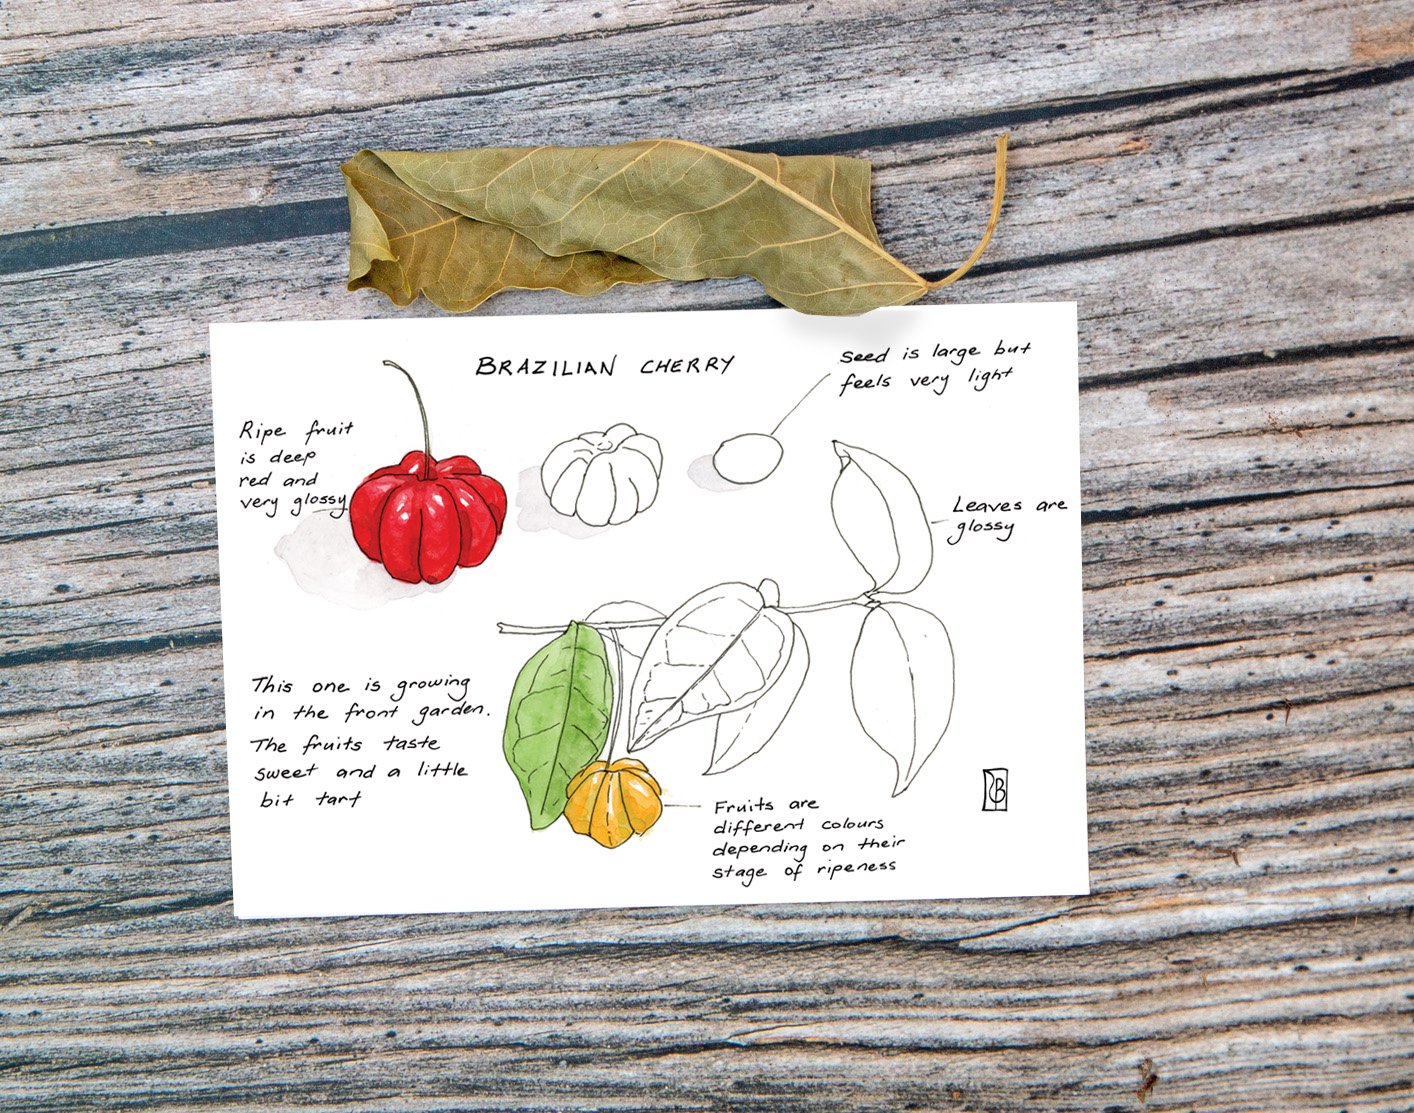 BRAZILIAN CHERRY
Seed is large but
feels very light
Ripe fruit
is deep
red and
very glossy
Leaves are
glossy
This one is growing
in the front garden.
The fruits taste
sweet and a little
bit tart
Fruits are
different colours
depending on their
stage of ripeness